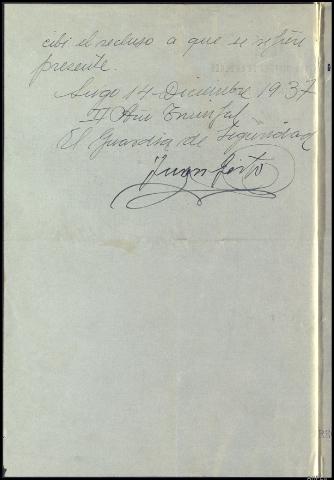 cibi el recluso a que se refiere
presente.
Lugo 14 Diciembre 1937
II Año Triunfal
El Guardia de Seguridad
Juan